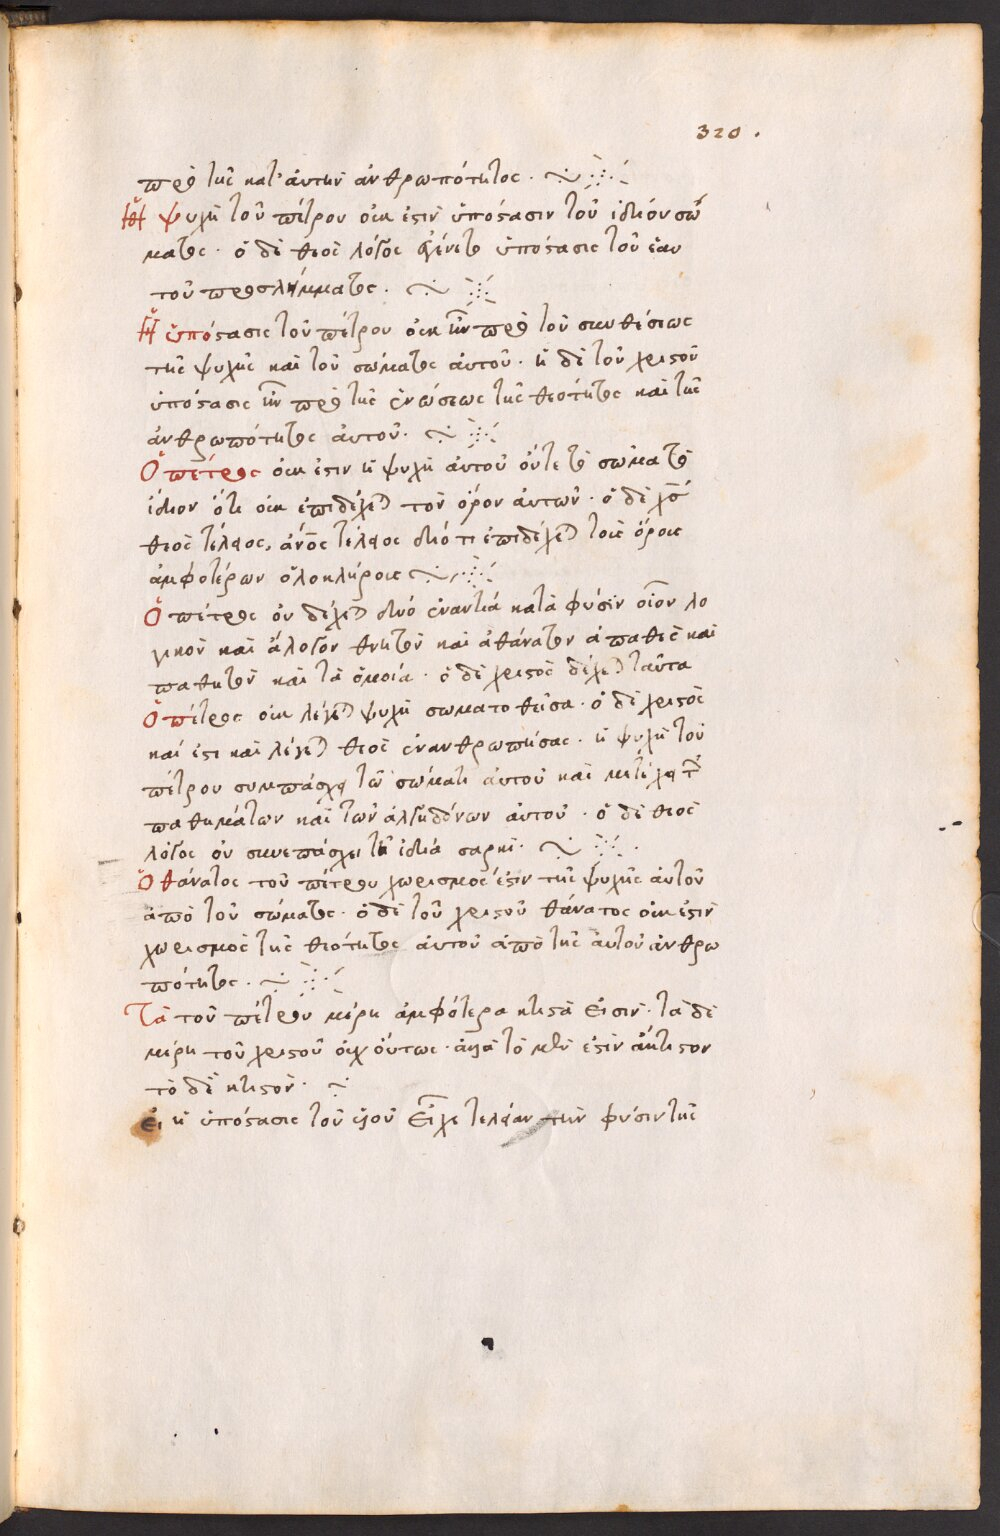 320.
πρὸ τῆς κατ' ἀυτὴν ἀνθρωπότητος.
Ἡ ψυχὴ τοῦ πέτρου οὐκ ἐστὶν ὑπόστασιν τοῦ ἰδίου σώ
ματος. ὁ δὲ θεὸς λόγος γένετο ὑπόστασις τοῦ ἑαυ
τοῦ προσλήμματος.
Ἡ ὑπόστασις τοῦ πέτρου οὐκ ἦν πρὸ τοῦ συνθέσεως
τῆς ψυχῆς καὶ τοῦ σώματος ἀυτοῦ. ἡ δὲ τοῦ χριστοῦ
ὑπόστασις ἦν πρὸ τῆς ἑνώσεως τῆς θεότητος καὶ τῆς
ἀνθρωπότητος ἀυτοῦ.
Ὁ πέτρος οὐκ ἐστιν ἡ ψυχὴ ἀυτοῦ οὔτε τὸ σώμα τὸ
ἴδιον ὅτι οὐκ ἐπιδέχεται τὸν ὅρον ἀυτῶν. ὁ δὲ χς
θεὸς τέλειος, ἄνος τέλειος διότι ἐπιδέχεται τοὺς ὅρους
ἀμφοτέρων ὁλοκλήρους
Ὁ πέτρος οὐ δέχεται δυό ἐναντία κατὰ φύσιν οἷον λο
γικὸν καὶ ἄλογον θνητὸν καὶ ἀθάνατον ἀπαθὲς καὶ
παθητὸν καὶ τὰ ὅμοια. ὁ δὲ χριστὸς δέχεται ταῦτα
Ὁ πέτρος οὐκ λέγεται ψυχὴ σωματοθεῖσα. ὁ δὲ χριστὸς
καί ἐστι καὶ λέγεται θεὸς ἐνανθρωπήσας. ἡ ψυχὴ τοῦ
πέτρου συμπάσχει τῶ σώματι ἀυτοῦ καὶ μετέχει τῶν
παθημάτων καὶ τῶν ἀλγηδόνων ἀυτοῦ. ὁ δὲ θεὸς
λόγος οὐ συνεπάσχει τῆ ἰδία σαρκὶ.
Ὁ θάνατος τοῦ πέτρου χωρισμος ἐστιν τῆς ψυχῆς ἀυτοῦ
ἀπὸ τοῦ σώματος. ὁ δὲ τοῦ χριστοῦ θάνατος οὐκ ἐστιν
χωρισμὸς τῆς θεότητος ἀυτοῦ ἀπὸ τῆς ἀυτοῦ ἀνθρω
πότητος.
Τὰ τοῦ πέτρου μέρη ἀμφότερα κτιστὰ εἰσιν. τὰ δὲ
μέρη τοῦ χριστοῦ οὐχ οὕτως. ἀλλὰ τὸ μὲν ἐστιν ἄκτιστον
τὸ δὲ κτιστὸν.
Εἰ ἡ ὑπόστασις τοῦ υἱοῦ εἶχε τελείαν τὴν φύσιν τῆς